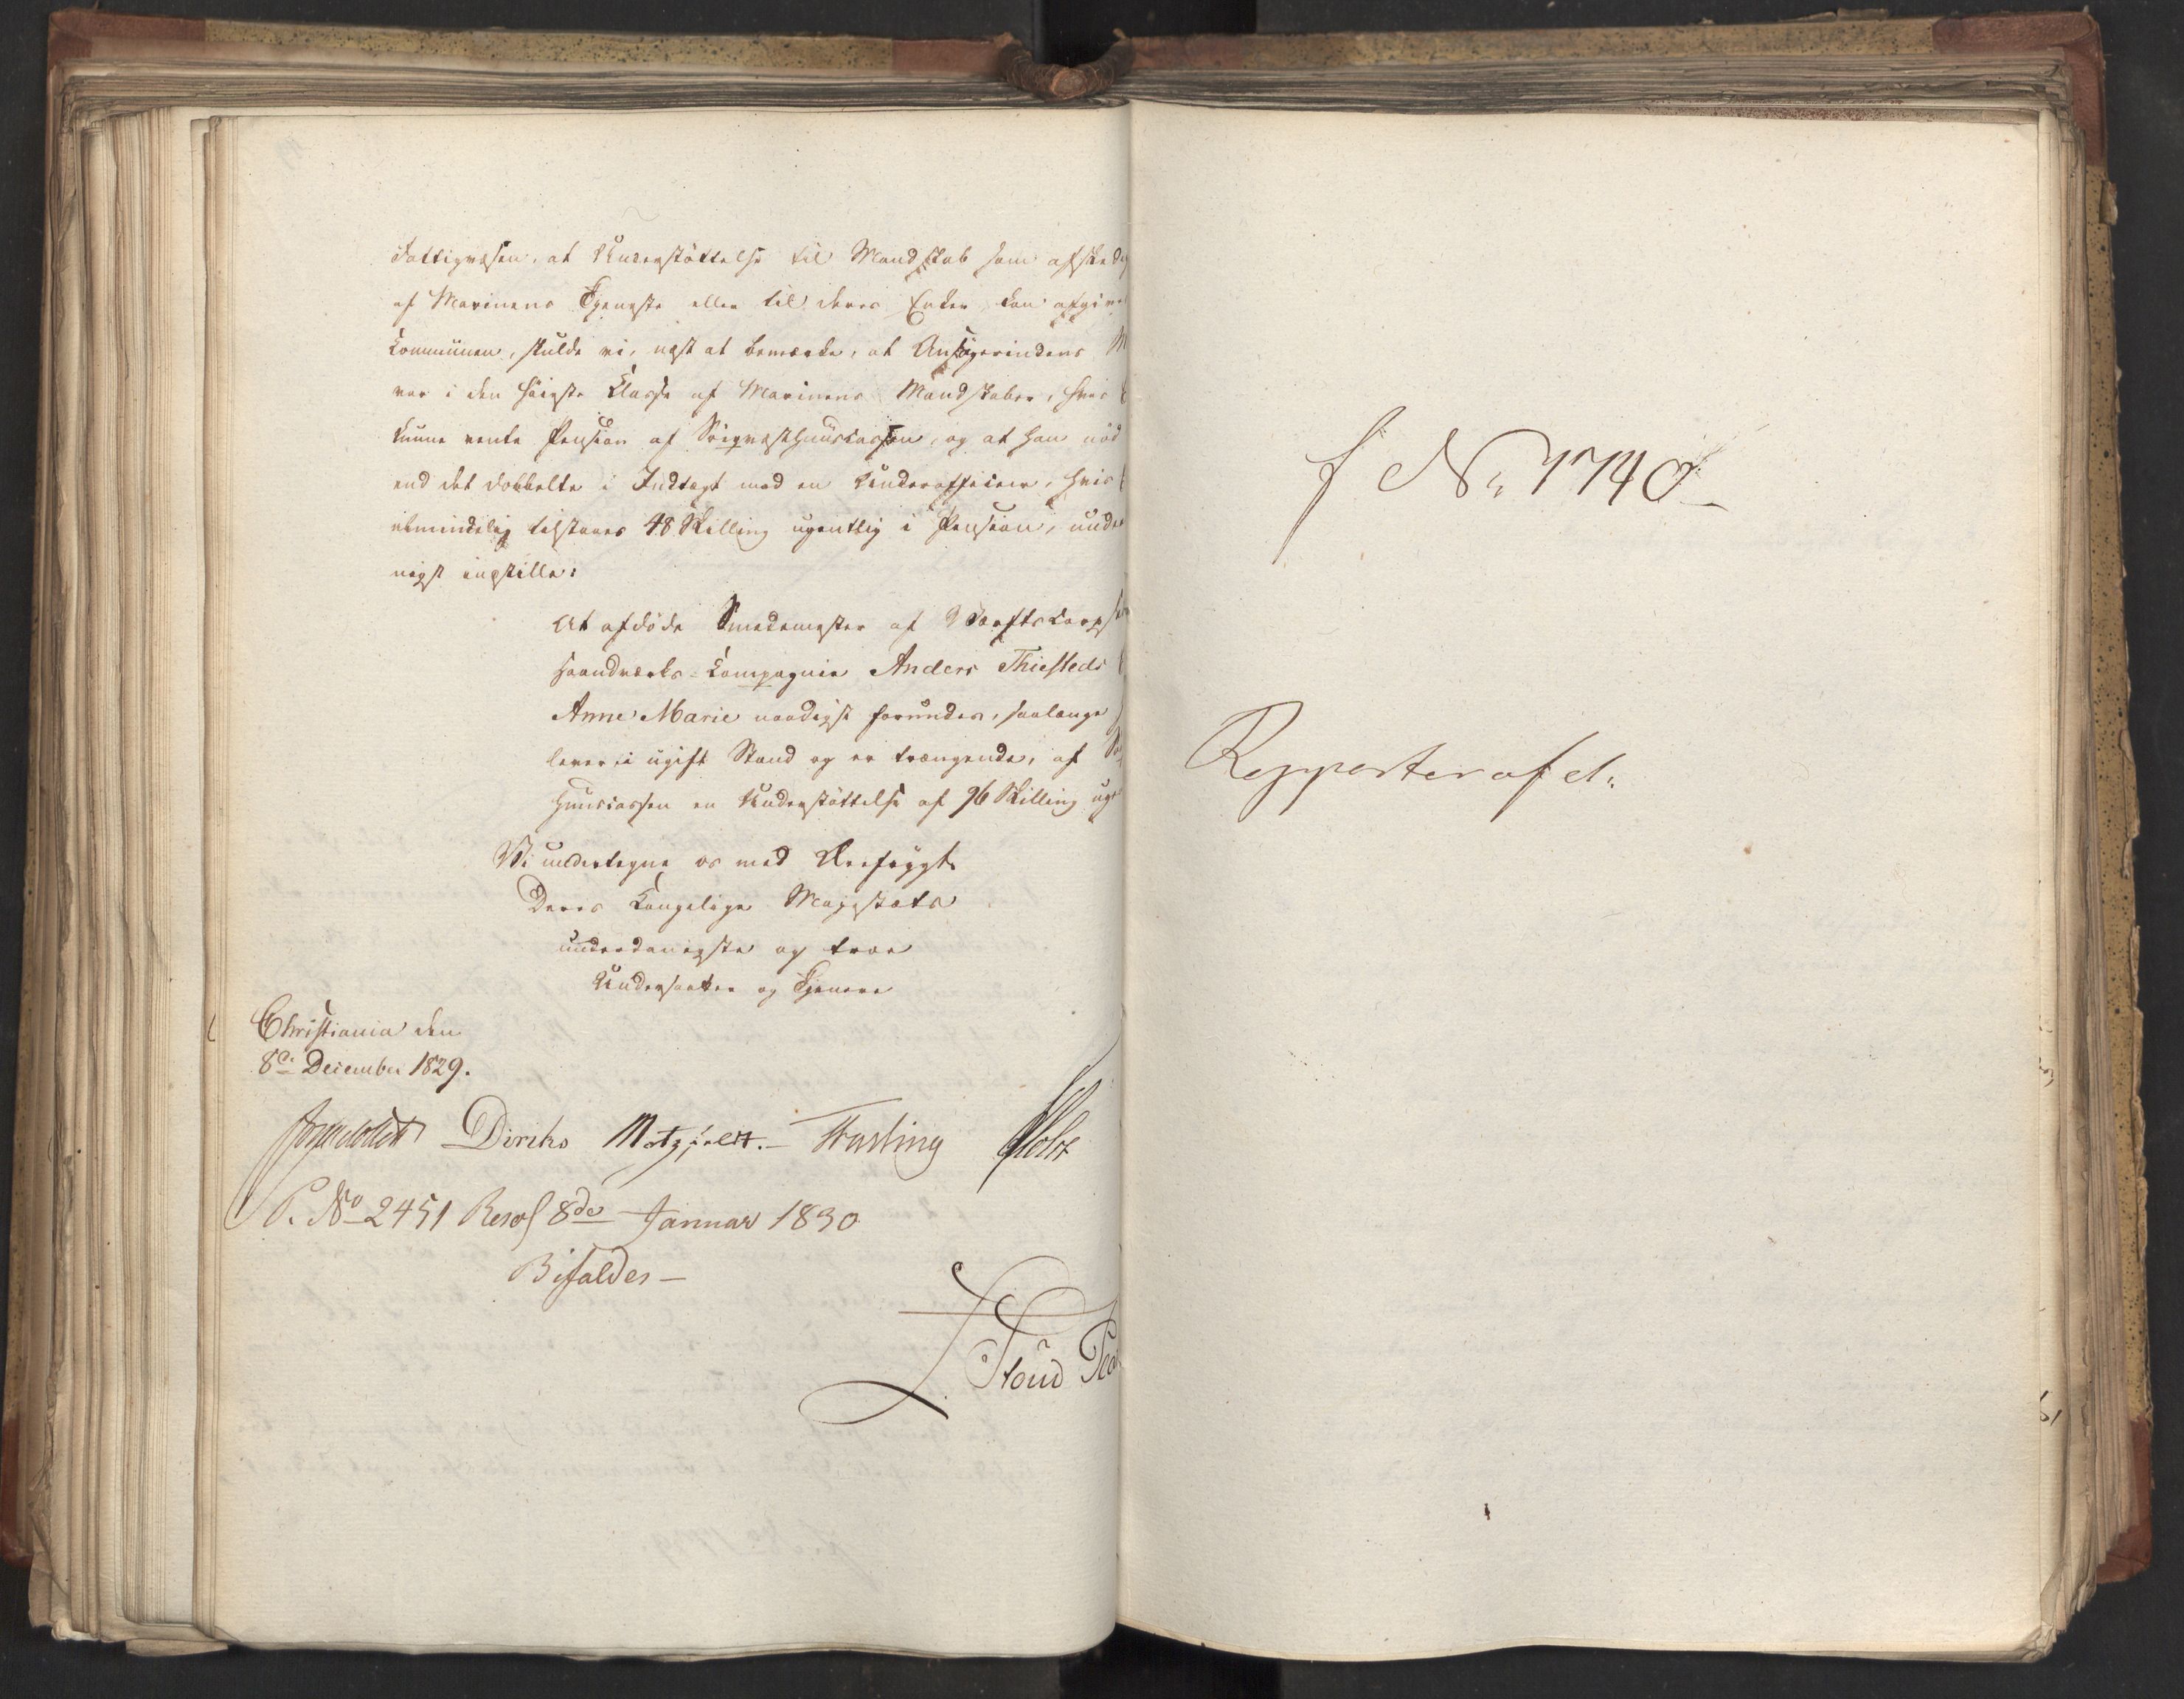 Fattigvæsen, at Understöttelse til Mandskab som afskedig
af Marinens Tjeneste eller til deres Enker kan afgives
Communen, skulde vi, næst at bemærke, at Ansögerindens M
var i den höieste Classe af Marinens Mandskaber, hvis
kunne vente Pension af Söeqvæsthuuscassen, og at han nöd
end det dobbelte i Indtægt mod en Underofficeer, hvis
almindelig tilstaaes 48 Skilling ugentlig i Pension, under
nigst indstille:
At afdöde Smedemester af Værftscorpsets
Haandværks-Compagnie Anders Thiesteds
Anne Marie naadigst forundes, saalænge
lever i ugift Stand og er trængende, af Sö
Huuscassen en Understöttelse af 96 Skilling uge
Vi undertegne os med Ærefrygt
Deres Kongelige Majestæts
underdanigste og troe
Undersaatter og Tjenere
Christiania den
8de December 1829.
Diriks Motzfeldt. Fasting Holst
P. No 2451 Resol 8de Januar 1830
Bifaldes —
f No 1740
Rapporter af d: